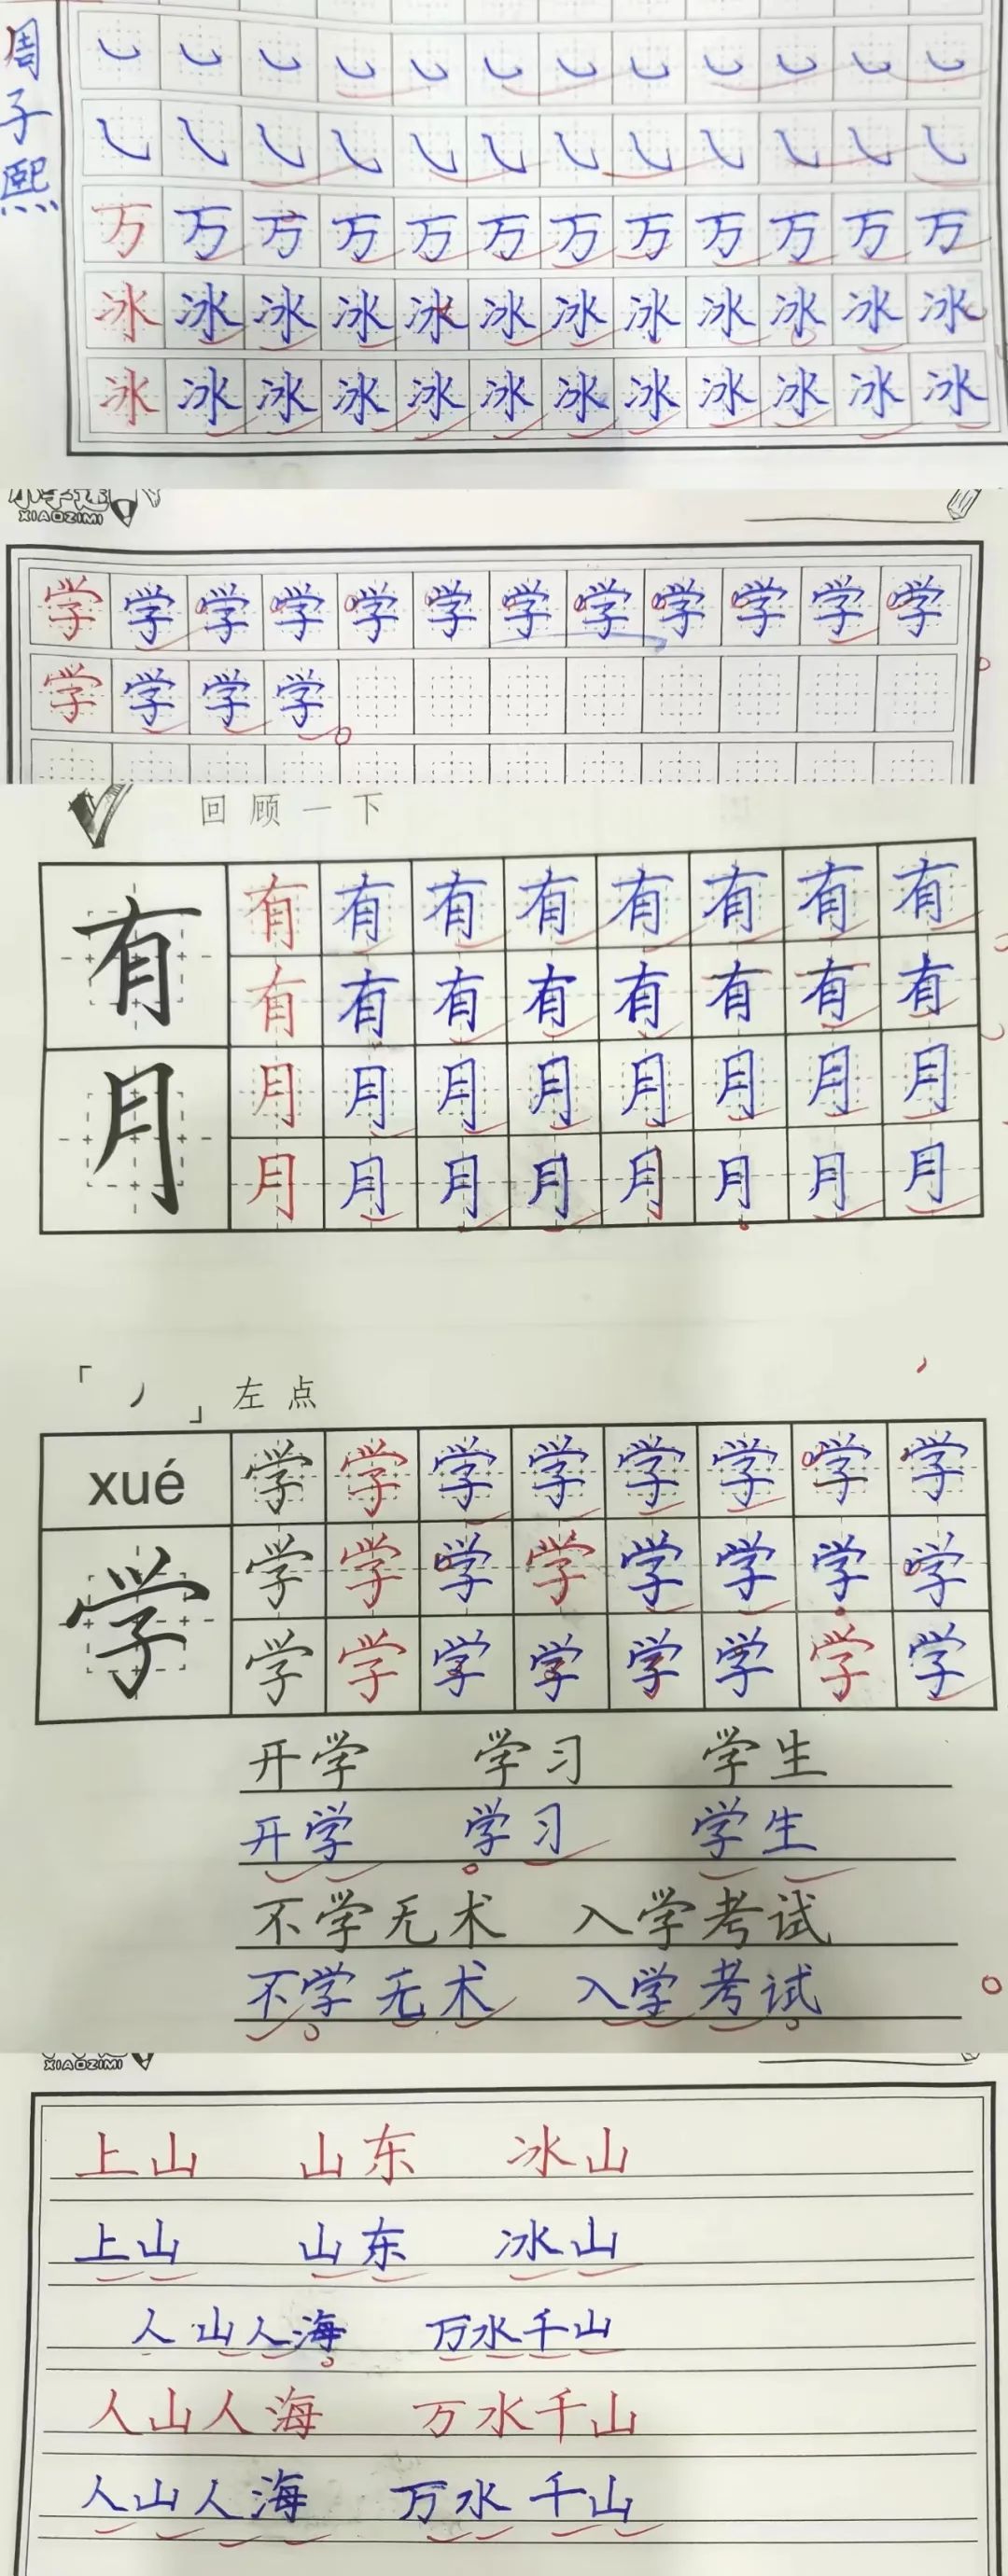 周子熙
万 万 万 万 万 万 万 万 万 万 万 万
冰 冰 冰 冰 冰 冰 冰 冰 冰 冰 冰 冰
冰 冰 冰 冰 冰 冰 冰 冰 冰 冰 冰 冰
XIAOZIMI
学 学 学 学 学 学 学 学 学 学 学 学
学 学 学 学
回顾一下
有 有 有 有 有 有 有 有 有
有 有 有 有 有 有 有 有
月 月 月 月 月 月 月 月 月
月 月 月 月 月 月 月 月
「丿」左点
xué 学 学 学 学 学 学 学 学
学 学 学 学 学 学 学 学 学
学 学 学 学 学 学 学 学
开学 学习 学生
开学 学习 学生
不学无术 入学考试
不学无术 入学考试
XIAOZIMI
上山 山东 冰山
上山 山东 冰山
人山人海 万水千山
人山人海 万水千山
人山人海 万水千山